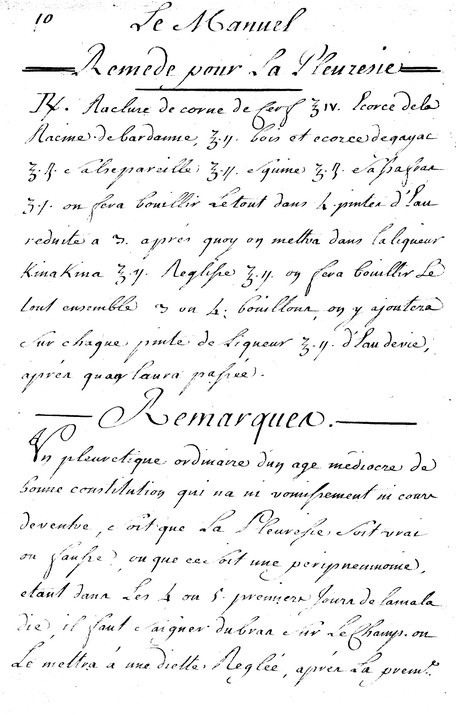 10 Le Manuel
Remede pour La Pleuresie
℞. Raclure de corne de Cerf ℥ iv. Ecorce de la
Racine de bardanne, ℥ ij. bois et ecorce de gayac
℥ ß. Salsepareille ℥ ij. Squine ℥ ß. Sassafras
ʒ j. on fera bouillir Le tout dans 4. pintes d'Eau
reduite a 3. aprés quoy on mettra dans la liqueur
KinaKina ℥ ij. Reglisse ℥ ij. on fera bouillir Le
tout ensemble 3 ou 4. bouillons, on y ajoutera
Sur chaque pinte de Liqueur ℥ ij. d'Eau devie,
aprés quay laura passée.
Remarques.
Un pleuretique ordinaire dun age médiocre de
bonne constitution qui na ni vomissement ni cours
deventre, Soit que La Pleuresie Soit vrai
ou fausse, ou que ce Soit une peripneumonie,
etant dans Les 4 ou 5. premiers Jours de lamala
die, il faut Saigner dubras Sur LeChamp. on
Le mettra á une diette Reglée, aprés La premr.